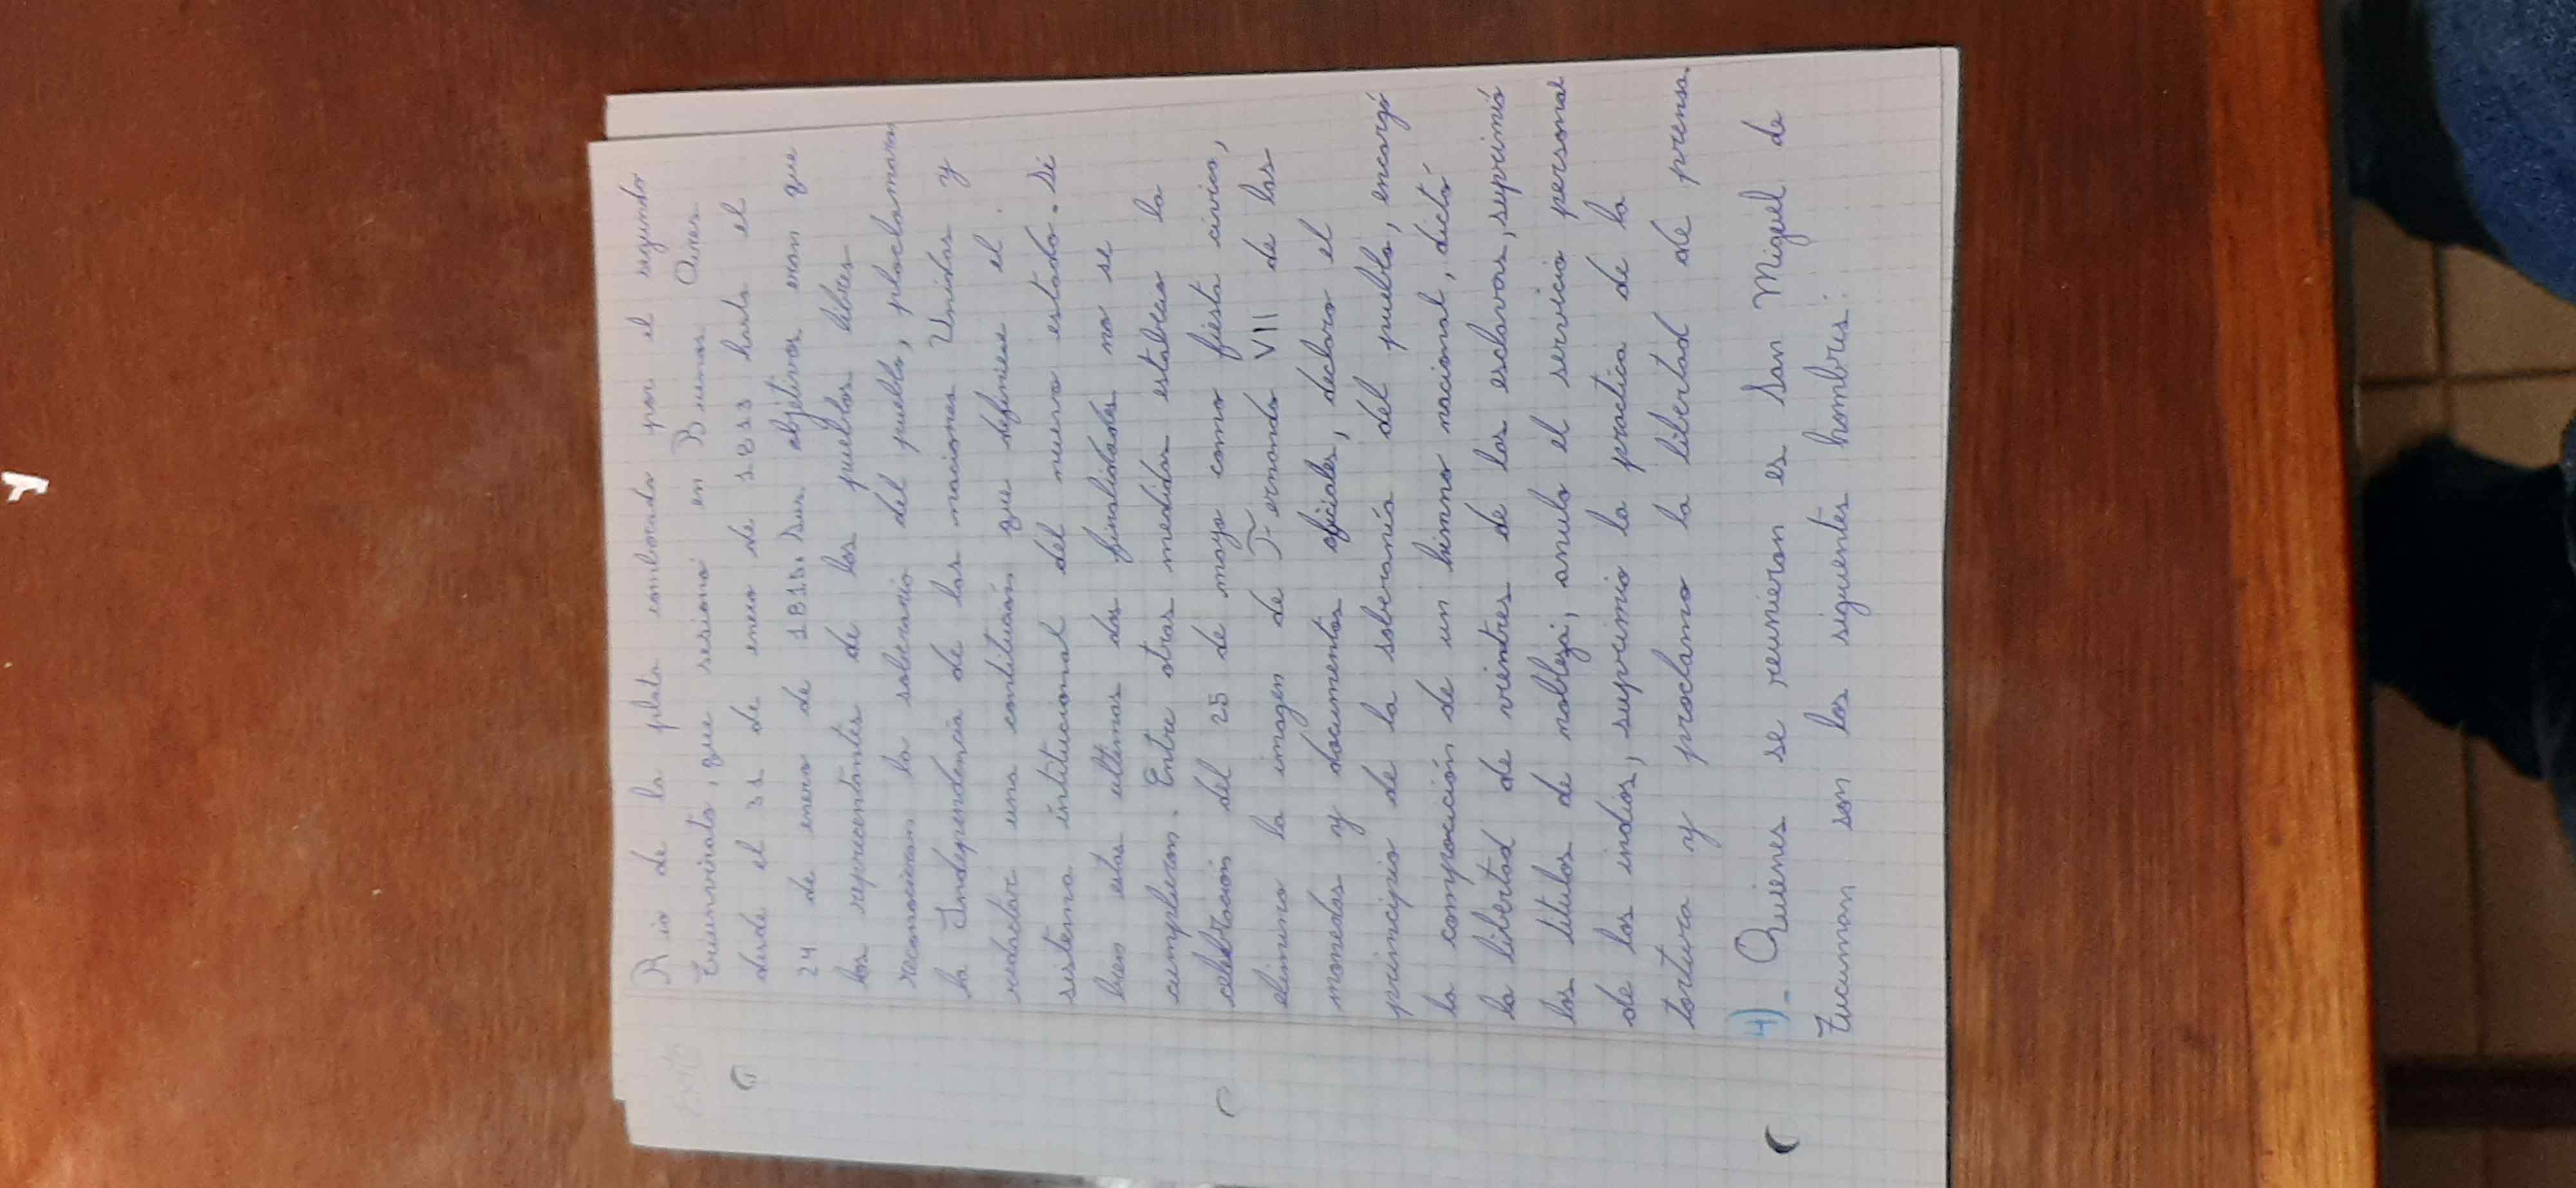 Rio de la plata combocada por el segundo
Triunvirato, que sesionó en Buenos Aires
desde el 31 de enero de 1813 hasta el
24 de enero de 1815. Sus objetivos eran que
los reprecentantes de los pueblos libres
reconocieran la soberania del pueblo, proclamaran
la Independencia de las naciones Unidas y
redactar una constitución que definiese el
sistema institucional del nuevo estado. Si
bien estas ultimas dos finalidades no se
cumplieron. Entre otras medidas estableció la
celebración del 25 de mayo como fiesta civica,
elimino la imagen de Fernando VII de las
monedas y documentos oficiales, declaro el
principio de la soberanía del pueblo, encargó
la composición de un himno nacional, dictó
la libertad de vientres de las esclavas, suprimió
los titulos de nobleza, anulo el servicio personal
de los indios, suprimio la practica de la
tortura y proclamo la libertad de prensa.
4)- Quienes se reunieron es San Migel de
Tucuman son los siguentes hombres: